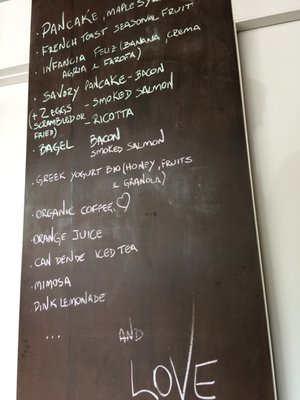 · PANCAKE, MAPLE SY
· FRENCH TOAST SEASONAL FRUIT
· INFANCIA FELIZ (BANANA, CREMA
AGRIA E FAROFA)
· SAVORY PANCAKE - BACON
(+ 2 EGGS - SMOKED SALMON
SCRAMBLED OR - RICOTTA
FRIED)
· BAGEL BACON
SMOKED SALMON
· GREEK YOGURT BIO (HONEY, FRUITS
& GRANOLA)
· ORGANIC COFFEE ♡
· ORANGE JUICE
· CANDENDE ICED TEA
· MIMOSA
· PINK LEMONADE
... AND
LOVE